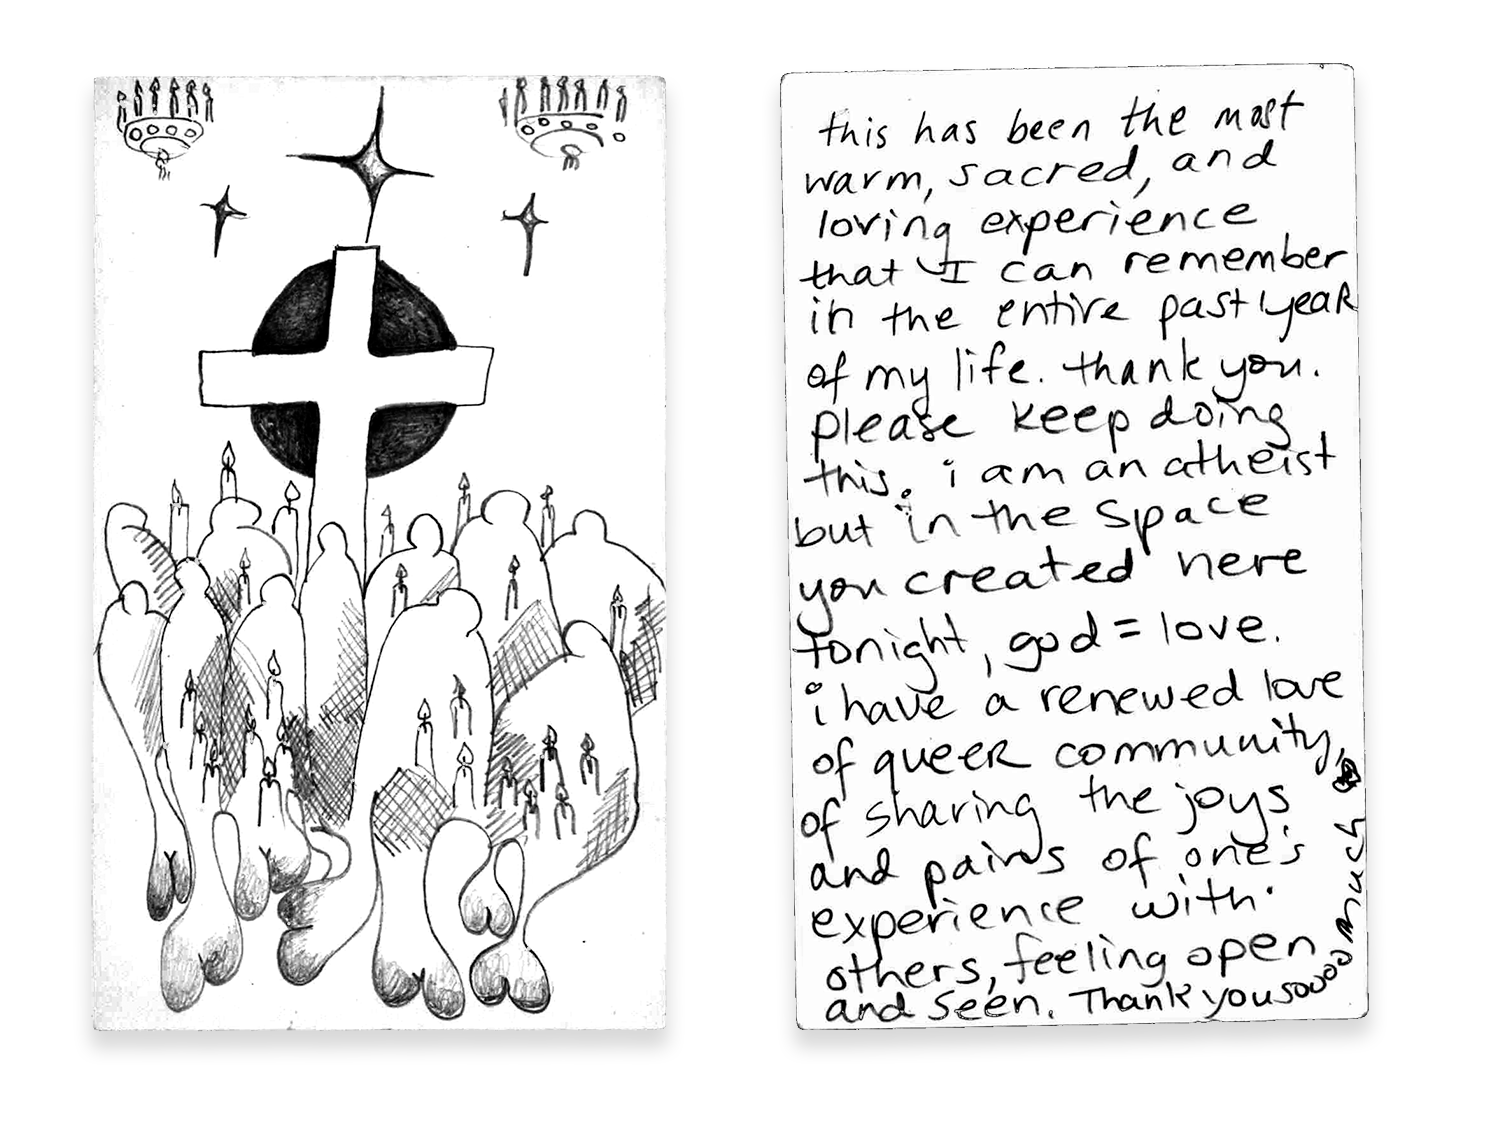 this has been the most
warm, sacred, and
loving experience
that I can remember
in the entire past year
of my life. thank you.
please keep doing
this. i am an atheist
but in the space
you created here
tonight, god = love.
i have a renewed love
of queer community,
of sharing the joys
and pains of one's
experience with
others, feeling open
and seen. Thank you soooo much